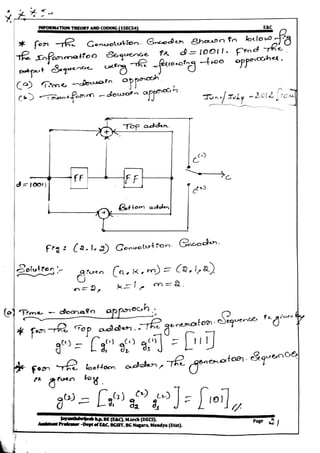 INFORMATION THEORY AND CODING (15EC54) E&C
* for The Convolution Encoder Shown in below fig
The Information Sequence is d=10011. find the
output Sequence using the following two approaches.
(a) Time -domain approach
(b) Transform -domain approach.
June/July -2012 [10M]
Top adder
C(1)
C
d=10011
FF
FF
C(2)
Bottom adder
Fig: (2,1,2) Convolution Encoder.
Solution:- given (n,k,m) = (2,1,2)
n=2, k=1, m=2.
(a) Time - domain approach:-
* for The Top adder, The generator Sequence is given by
g(1) = [g(1) g(1) g(1)] = [111]
* for The bottom adder, The generator Sequence
is given by
g(2) = [g(2) g(2) g(2)] = [101]
b.p, BE (E&C), M.tech (DECS).
Assistant Professor -Dept of E&C. BGSIT, BG Nagara, Mandya (Dist).
Page 2